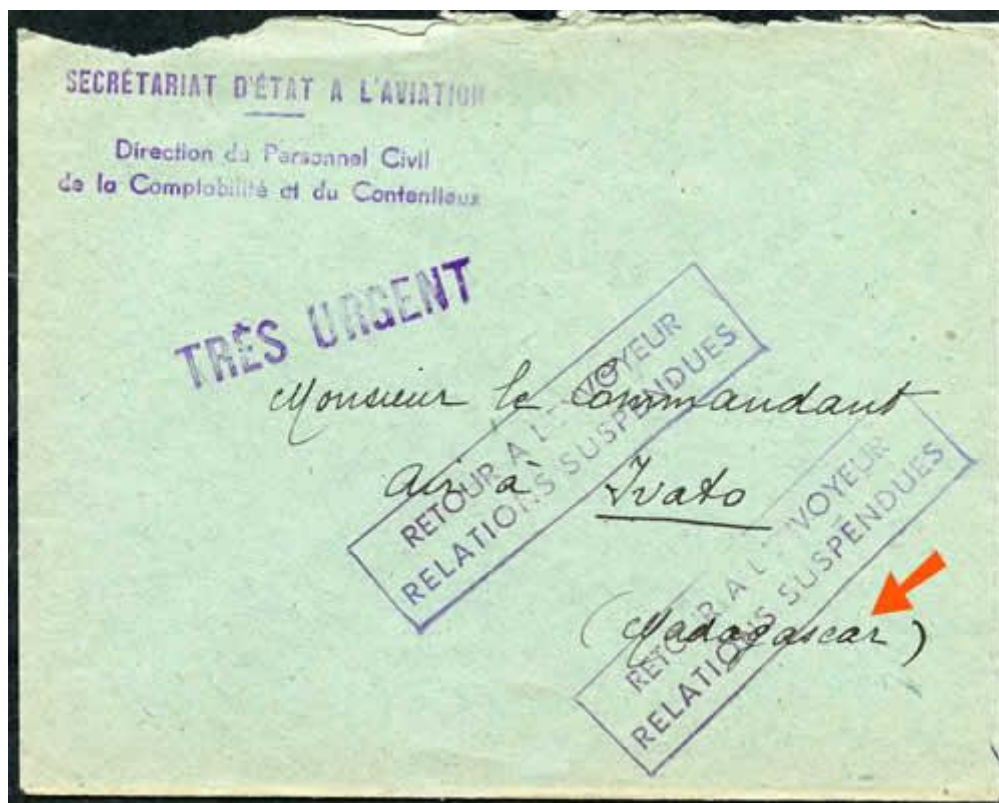 SECRÉTARIAT D'ÉTAT A L'AVIATION
Direction du Personnel Civil
de la Comptabilité et du Contentieux
TRÈS URGENT
Monsieur le Commandant
air à Ivato
(Madagascar)
RETOUR A L'ENVOYEUR
RELATIONS SUSPENDUES
RETOUR A L'ENVOYEUR
RELATIONS SUSPENDUES